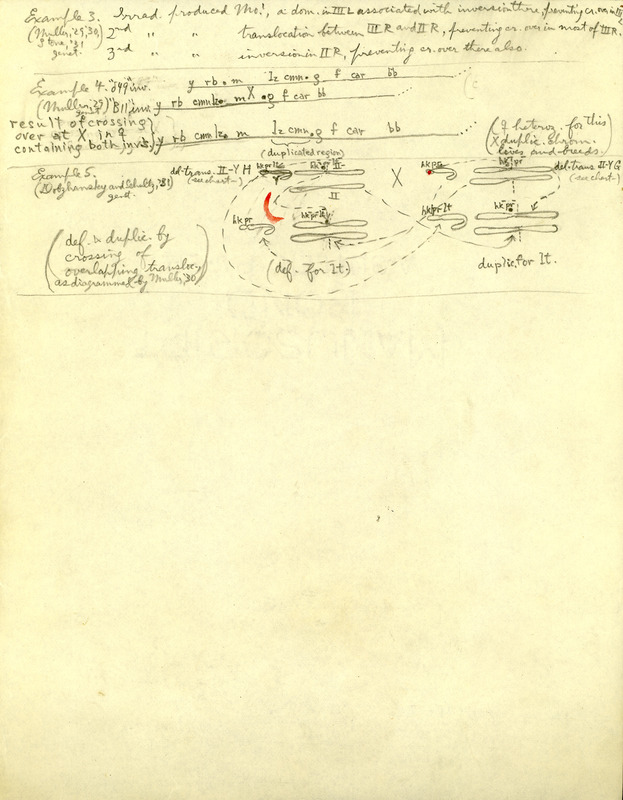 Example 3. Irrad. produced Mo!, a dom. in III L associated with inversion there, preventing cr. over in
(Muller, '29, '30) 2nd " " translocation between III R and II R, preventing cr. over in most of III R.
Stone, '31
genet. 3rd " " inversion in II R, preventing cr. over there also.
Example 4. "δ49" inv. y rb . m lz cmn . g f car bb
(Muller, 29) "B11" inv. y rb cmn lz . m X . g f car bb
result of crossing
over at X in ♀
containing both invs. y rb cmn lz . m lz cmn . g f car bb
(duplicated region)
(♀ heteroz. for this
X duplic. chrom.
lives and breeds.)
Example 5. del-trans. II-Y H hk pr lt II X hk pr hk pr del-trans. II-Y G
(Dobzhansky and Schultz, '31) (see chart) II (see chart)
genet.
hk pr hk pr lt hk pr lt hk pr
(def. & duplic. by
crossing of
overlapping transloc.,
as diagrammed by Muller, '30)
(def. for lt.) duplic. for lt.